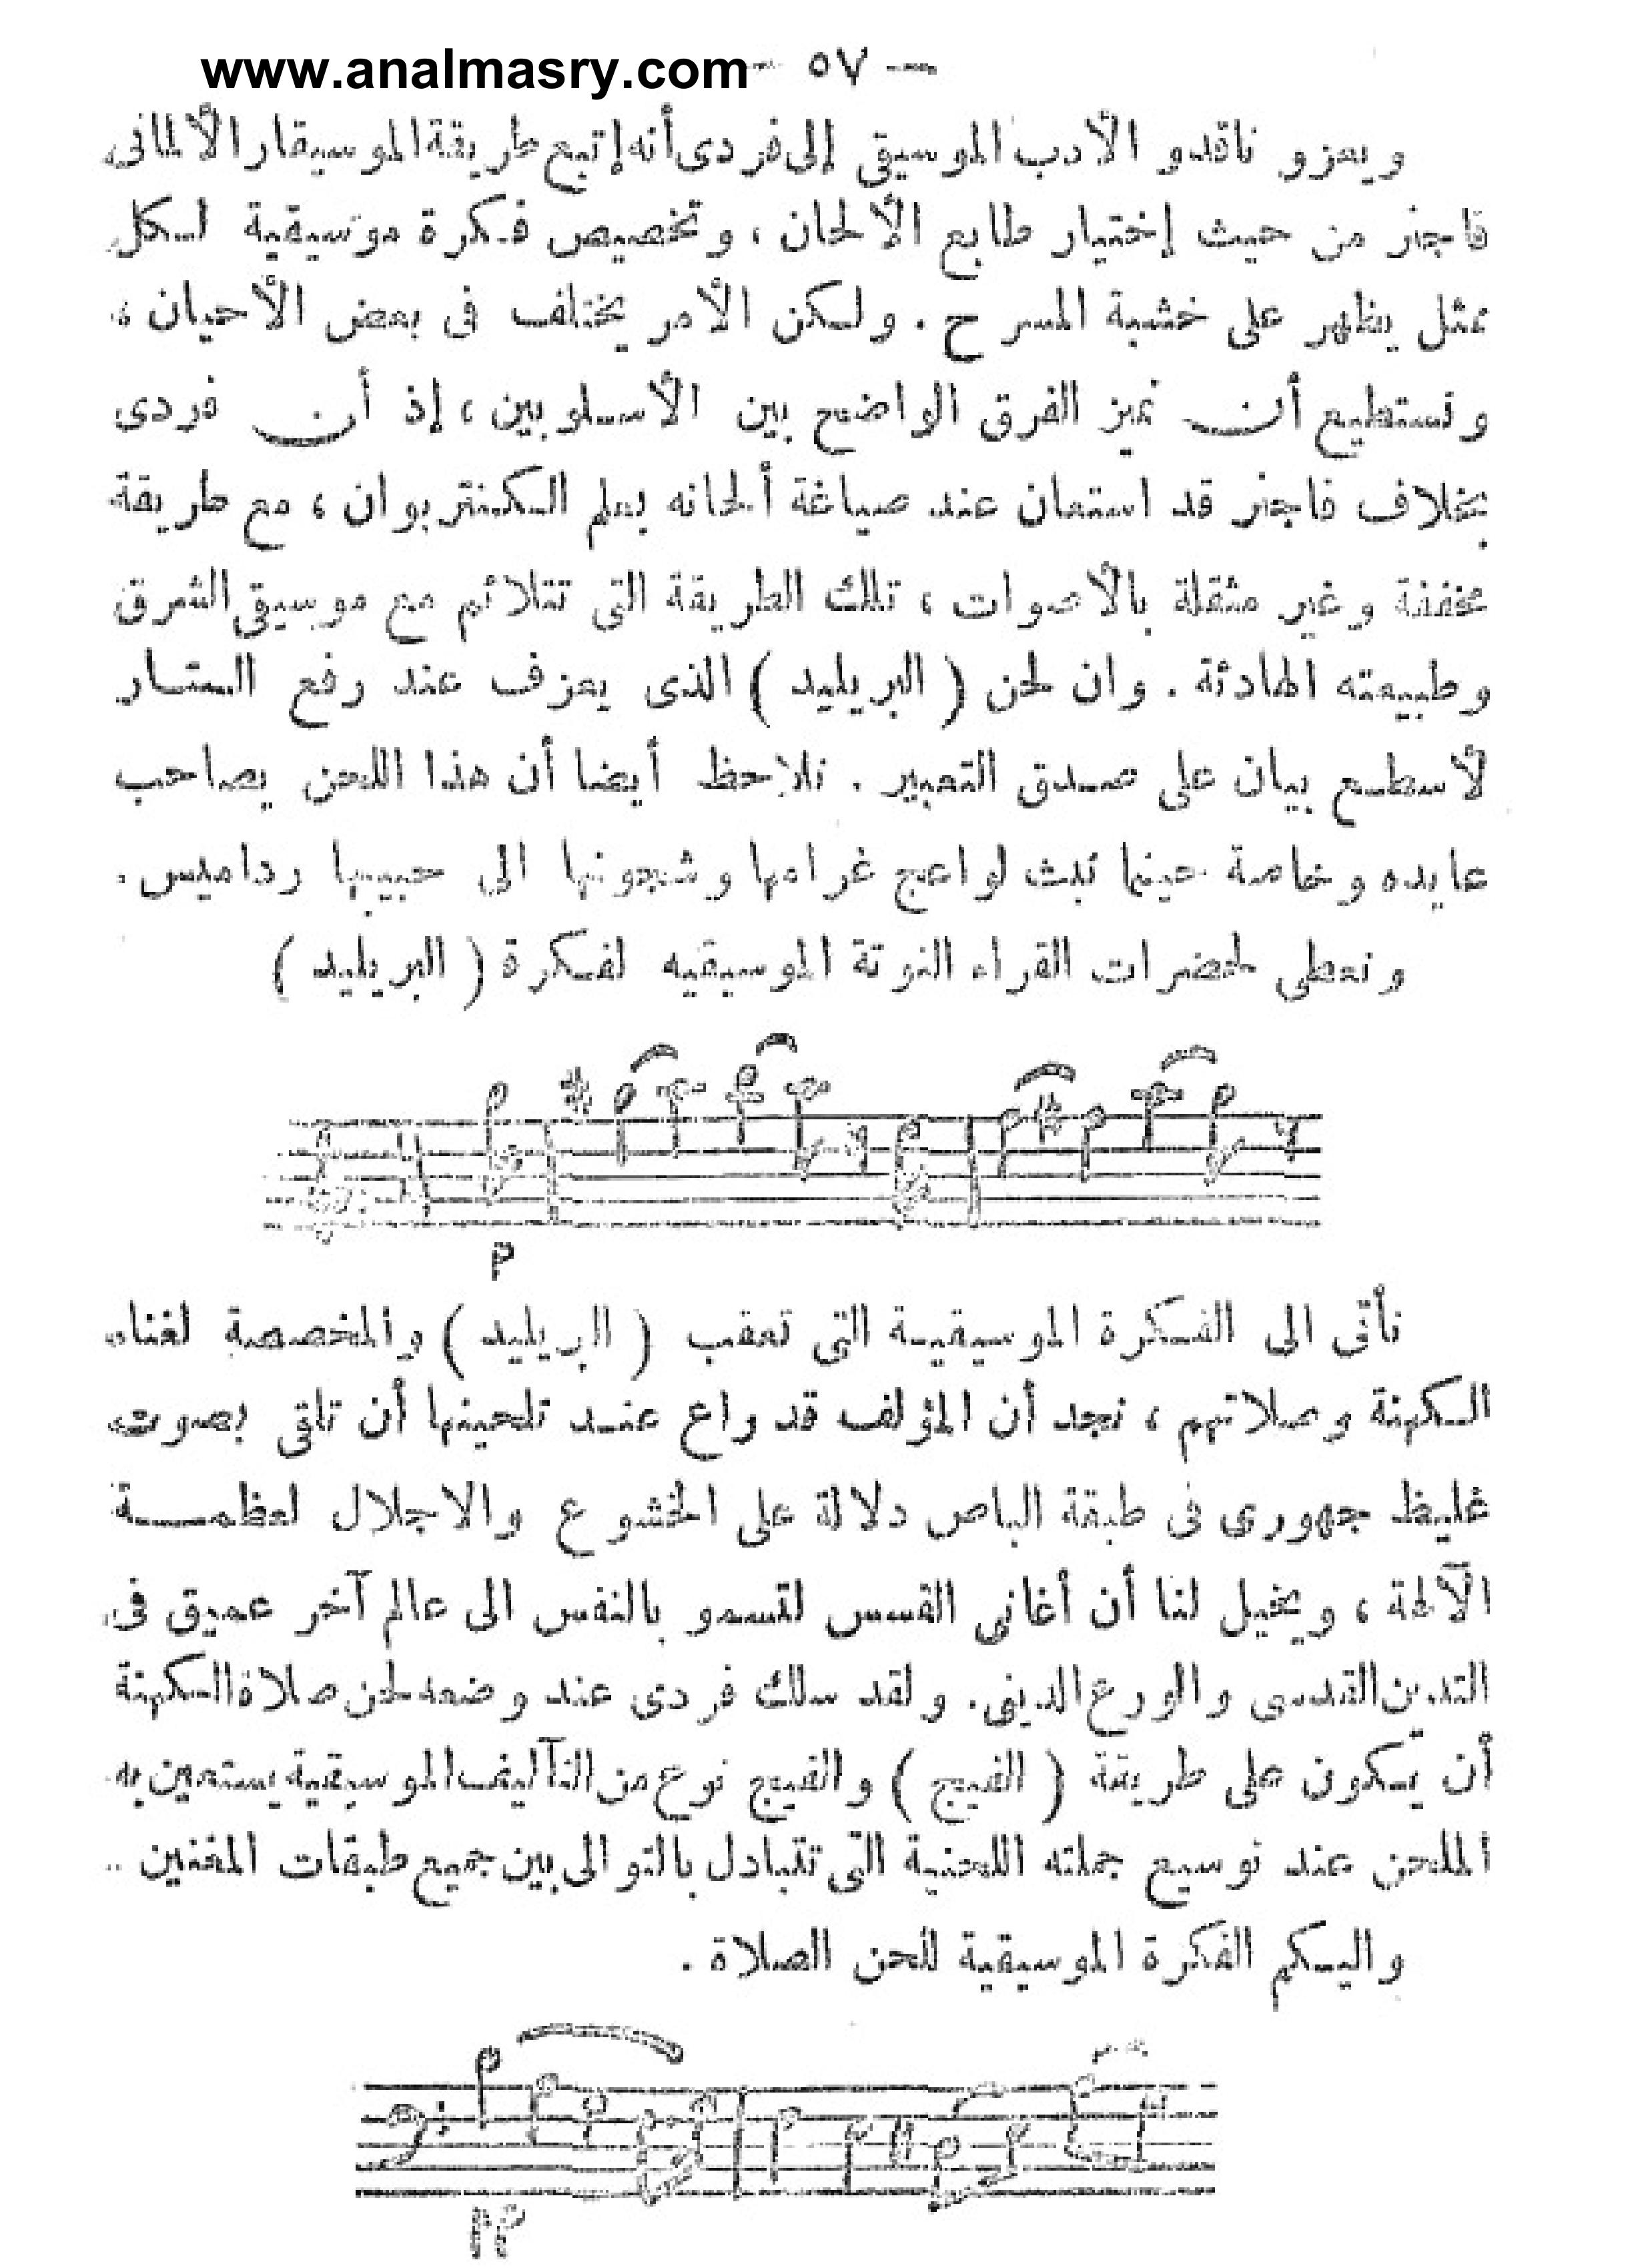 www.analmasry.com
— ٥٧ —
ويعزو ناقدو الأدب الموسيقى إلى فردى أنه إتبع طريقة الموسيقار الألمانى
فاجنر من حيث إختيار طابع الألحان ، وتخصيص فكرة موسيقية لكل
ممثل يظهر على خشبة المسرح . ولكن الأمر يختلف فى بعض الأحيان ،
ونستطيع أن نميز الفرق الواضح بين الأسلوبين ، إذ أن فردى
بخلاف فاجنر قد استعان عند صياغة ألحانه بعلم الكنتربوان ، مع طريقة
مخففة وغير مثقلة بالأصوات ، تلك الطريقة التى تتلائم مع موسيقى الشرق
وطبيعته الهادئة . وان لحن ( البريليد ) الذى يعزف عند رفع الستار
لأسطع بيان على صدق التعبير . نلاحظ أيضا أن هذا اللحن يصاحب
عايده وخاصة حينما تبث لواعج غرامها وشجونها الى حبيبها رداميس .
ونعطى لحضرات القراء النوتة الموسيقيه لفكرة ( البريليد )
P
نأتى الى الفكرة الموسيقية التى تعقب ( البريليد ) والمخصصة لغناء
الكهنة وصلاتهم ، نجد أن المؤلف قد راع عند تلحينها أن تلقى بصوت
غليظ جهورى فى طبقة الباص دلالة على الخشوع والاجلال لعظمة
الآلهة ، ويخيل لنا أن أغانى القسس لتسمو بالنفس الى عالم آخر عميق فى
التدين القدسى والورع الدينى . ولقد سلك فردى عند وضعه لحن صلاة الكهنة
أن تكون على طريقة ( الفيج ) والفيج نوع من التآليف الموسيقية يستعين به
الملحن عند توسيع جملته اللحنية التى تتبادل بالتوالى بين جميع طبقات المغنين ..
واليكم الفكرة الموسيقية للحن الصلاة .
PP